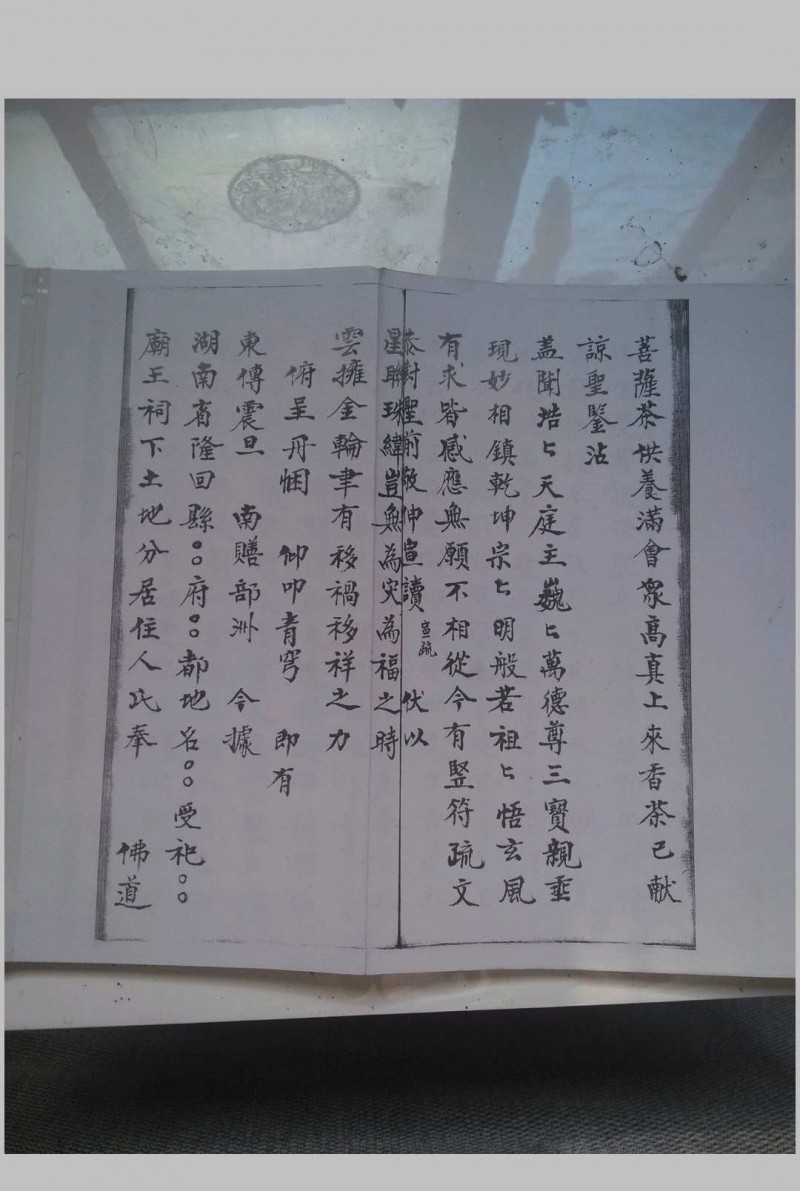 菩薩茶供養滿會衆高真上來香茶已献
諒聖鑒沾
盖聞浩〻天庭主巍〻萬德尊三寳親垂
現妙相鎮乾坤宗〻明般若祖〻悟玄風
有求皆感應無願不相從今有竪符疏文
恭對聖前敬伸宣讀 宣疏 伏以
星聯珠緯豈無為灾為福之時
雲擁金輪聿有移禍移祥之力
俯呈丹悃 仰叩青穹 即有
東傳震旦 南贍部洲 今據
湖南省隆回縣〇〇府〇〇都地名〇〇受祀〇〇
廟王祠下土地分居住人氏奉 佛道